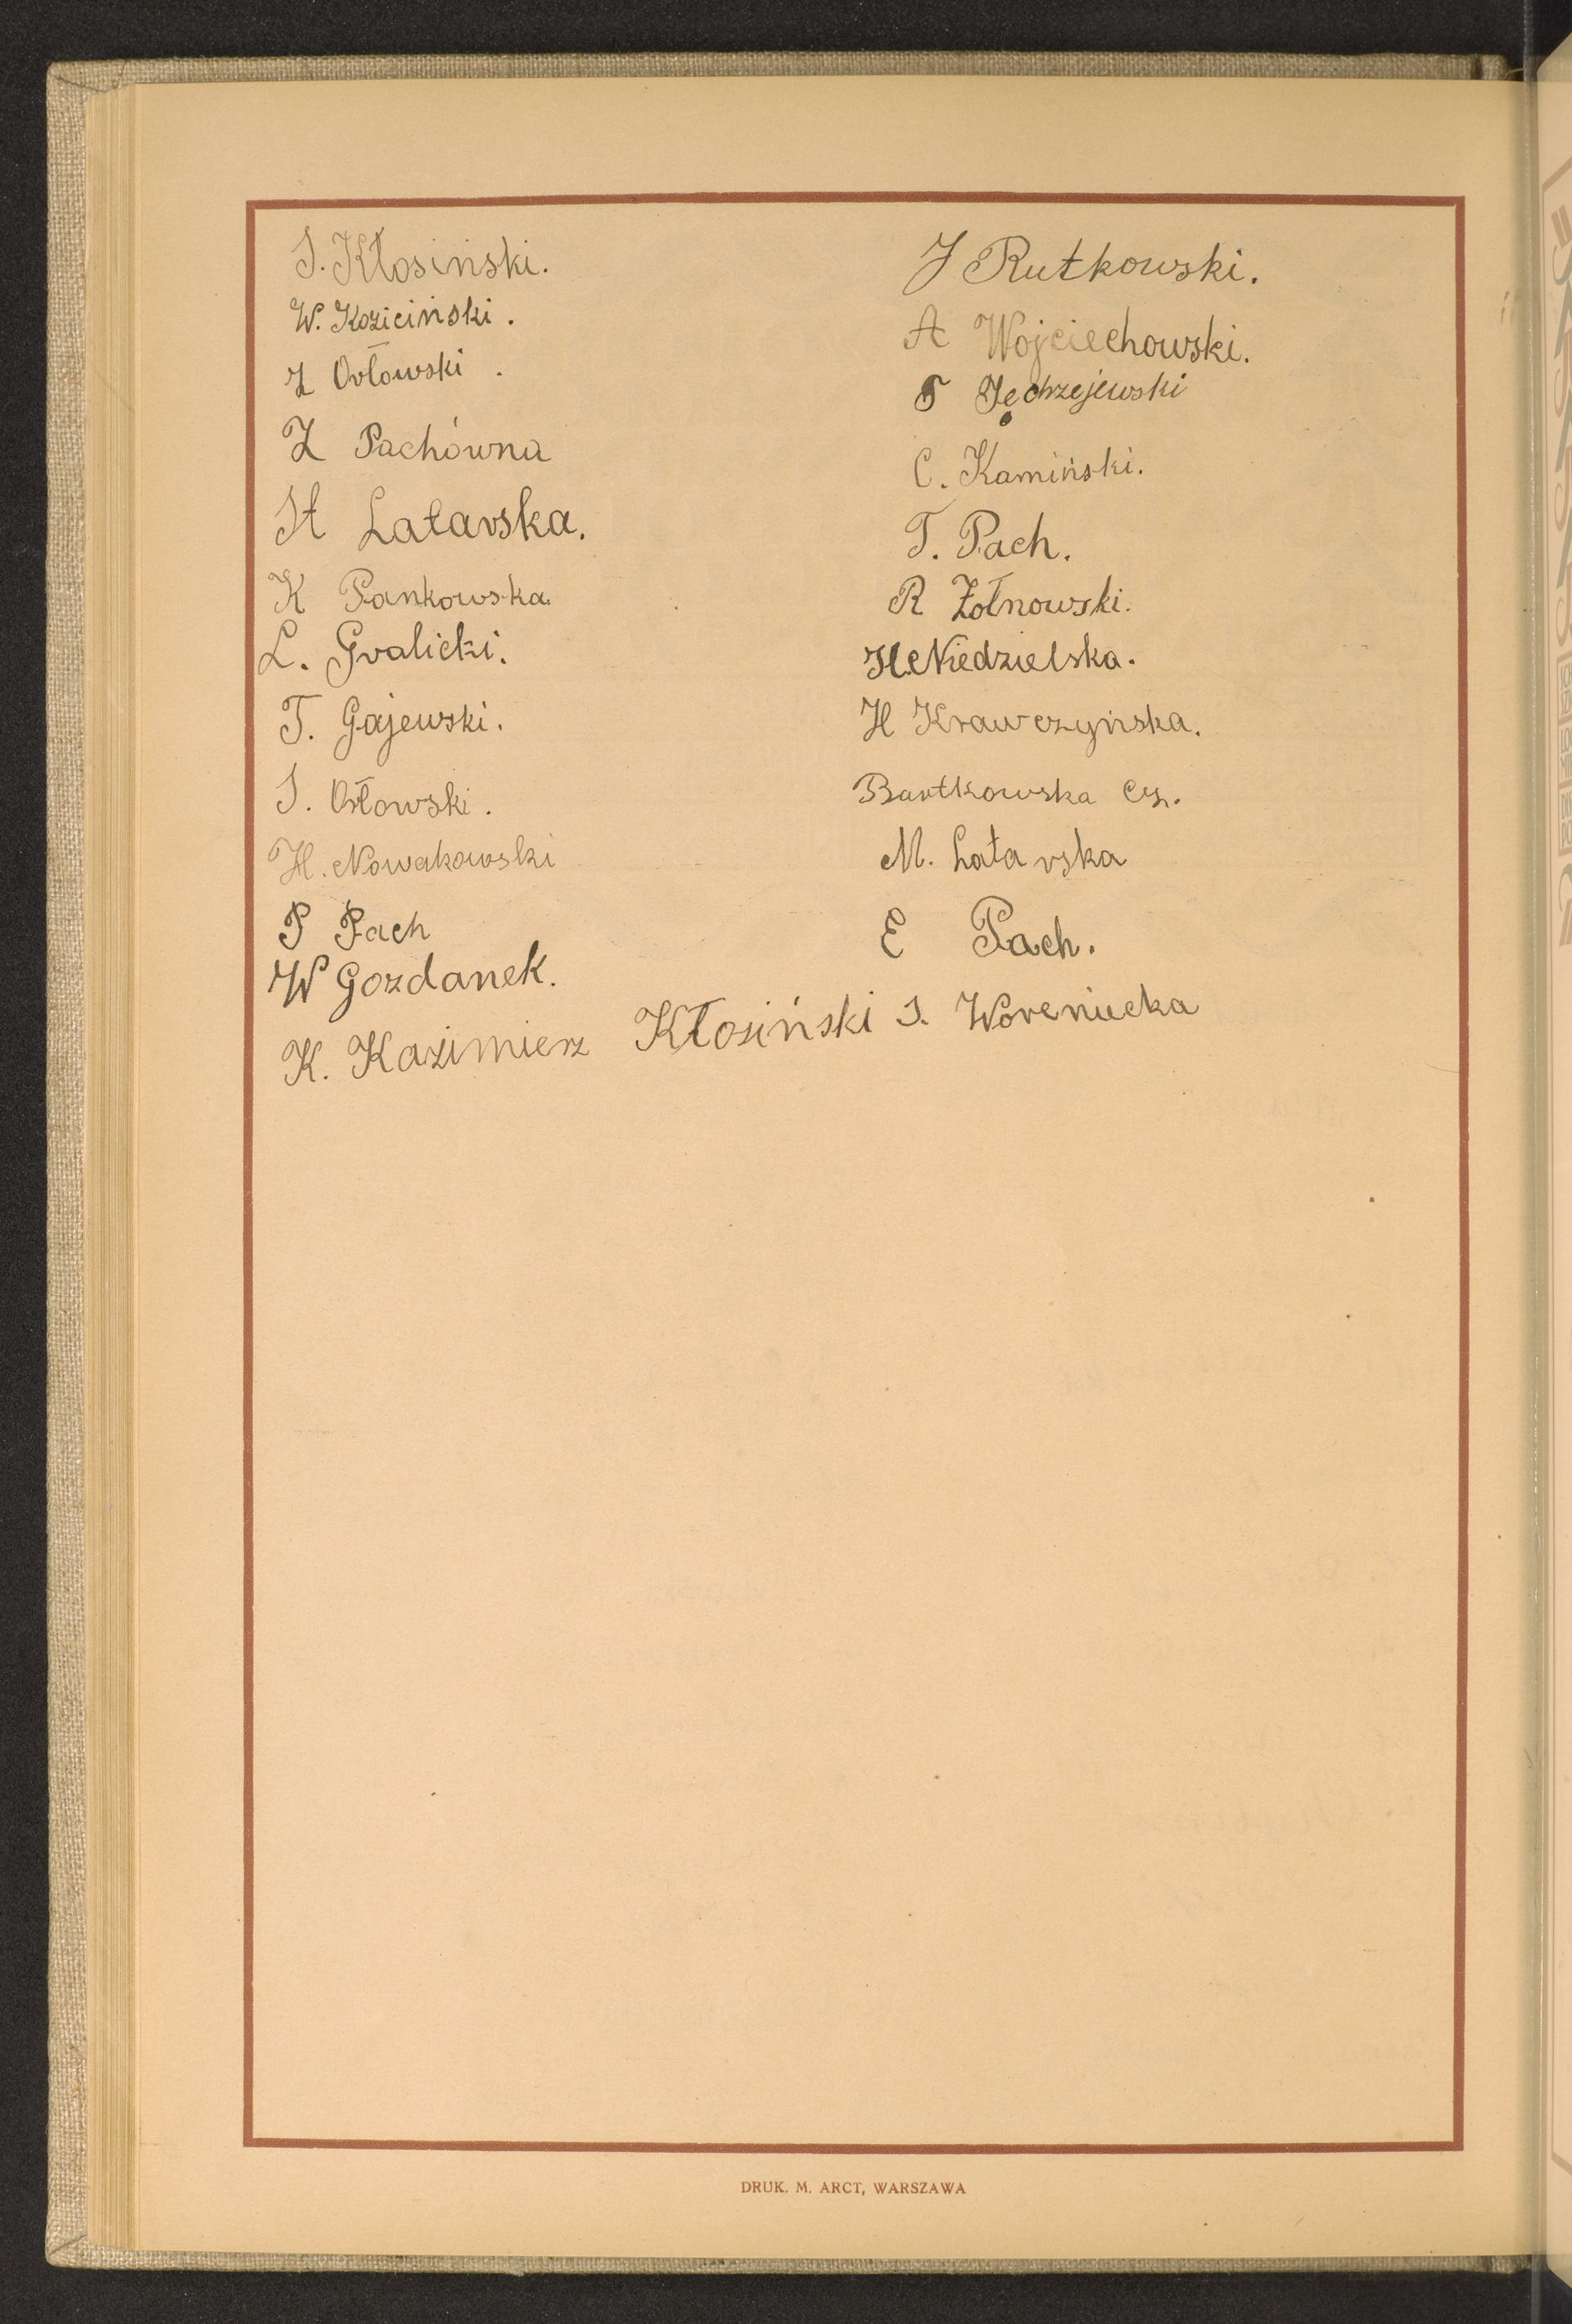 S. Kłosiński.
W. Koziciński.
Z Orłowski.
Z Pachówna
St Latarska.
K Pankowska.
L. Gralicki.
T. Gajewski.
S. Orłowski.
H. Nowakowski
P Pach
W Gozdanek.
K. Kaźimierz Kłosiński S. Woreniecka
J Rutkowski.
A Wojciechowski.
C. Kamiński.
T. Pach.
R Żołnowski.
H. Niedzielska.
H Krawczyńska.
Bartkowska Cz.
M. Łatarska
E Pach.
DRUK. M. ARCT, WARSZAWA